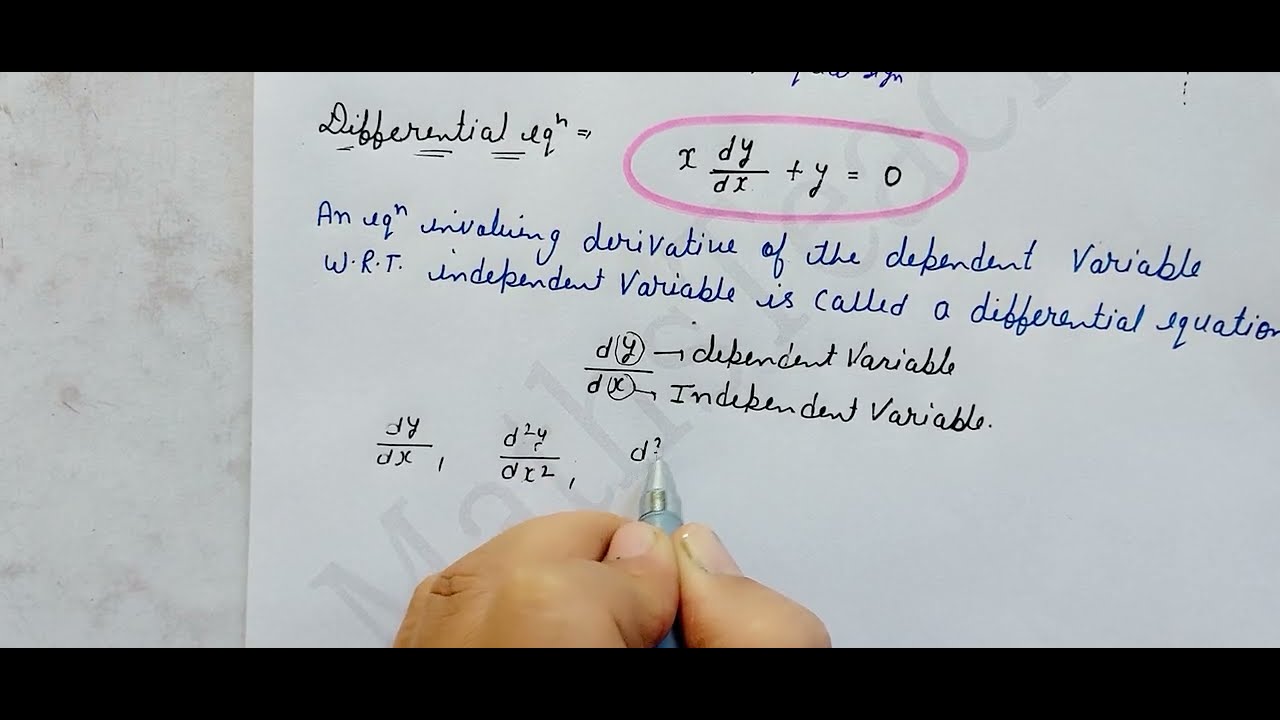 sign
Differential eqⁿ ⇒ x dy/dx + y = 0
An eqⁿ involving derivative of the dependent Variable
W.R.T. independent Variable is called a differential equation
d(y) → dependent Variable
d(x) → Independent Variable.
dy/dx, d²y/dx², d³
Maths Teach